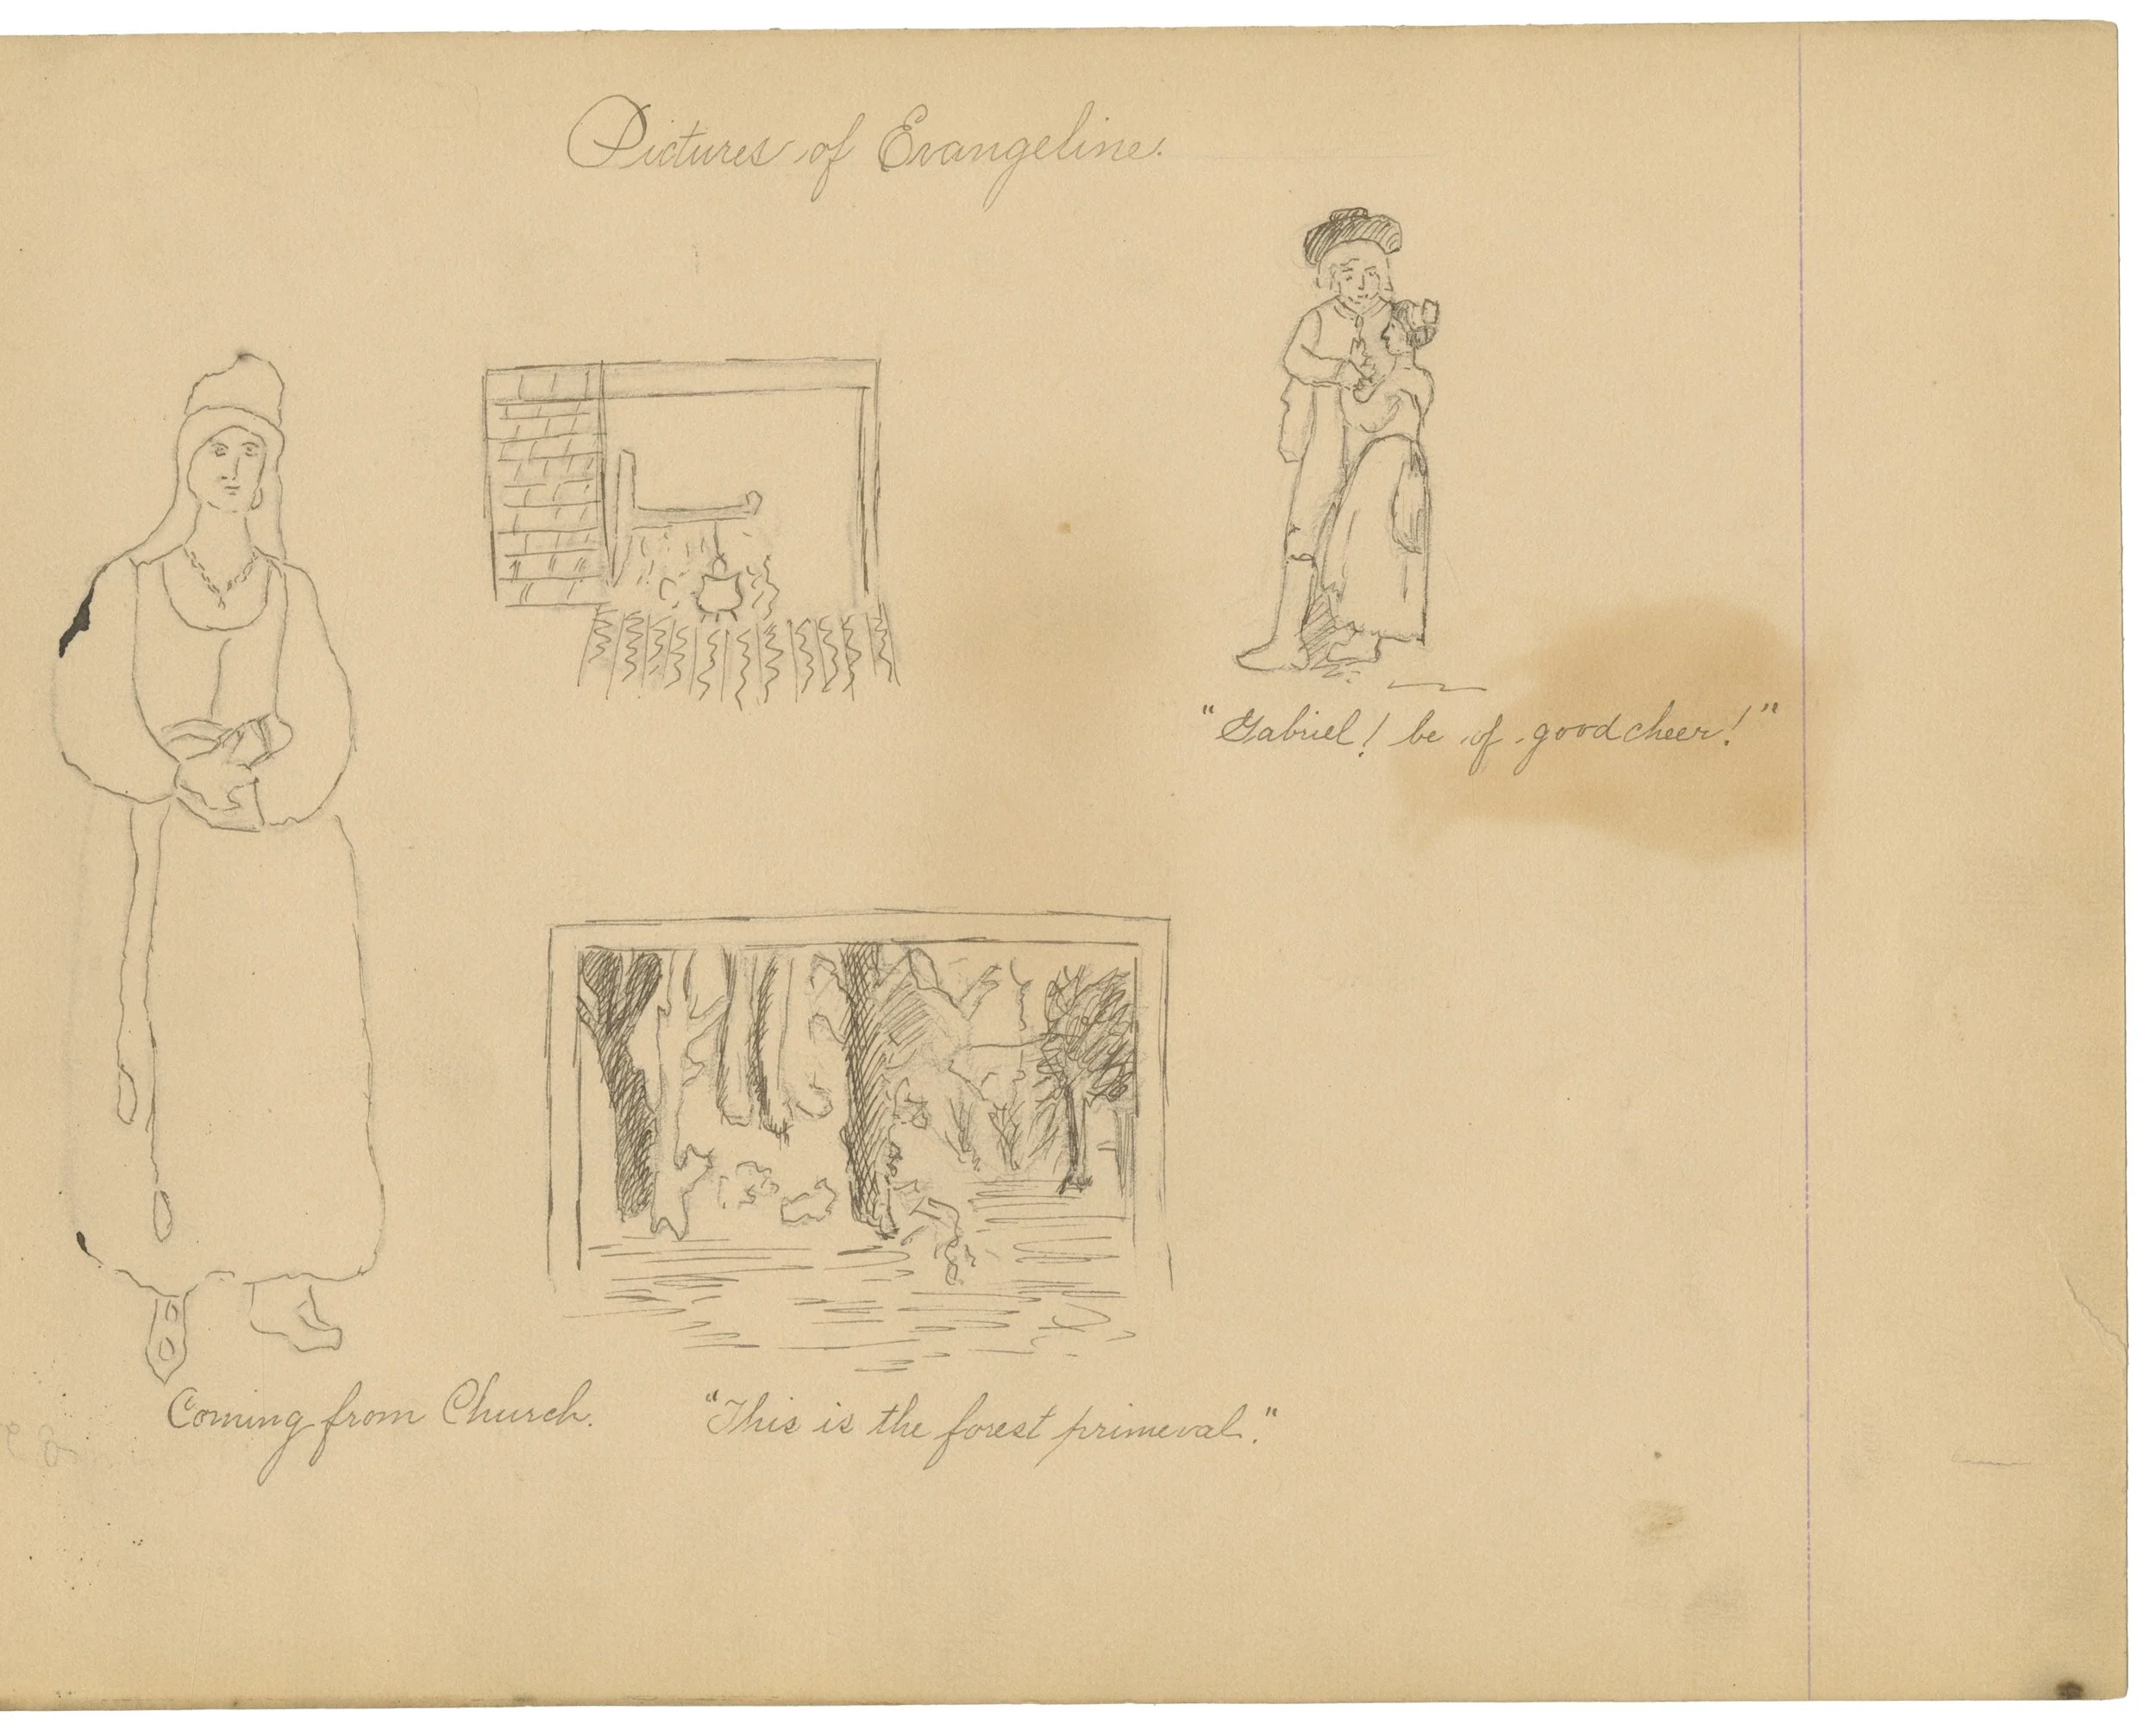 Pictures of Evangeline.
"Gabriel! be of good cheer!"
Coming from Church.
"This is the forest primeval."